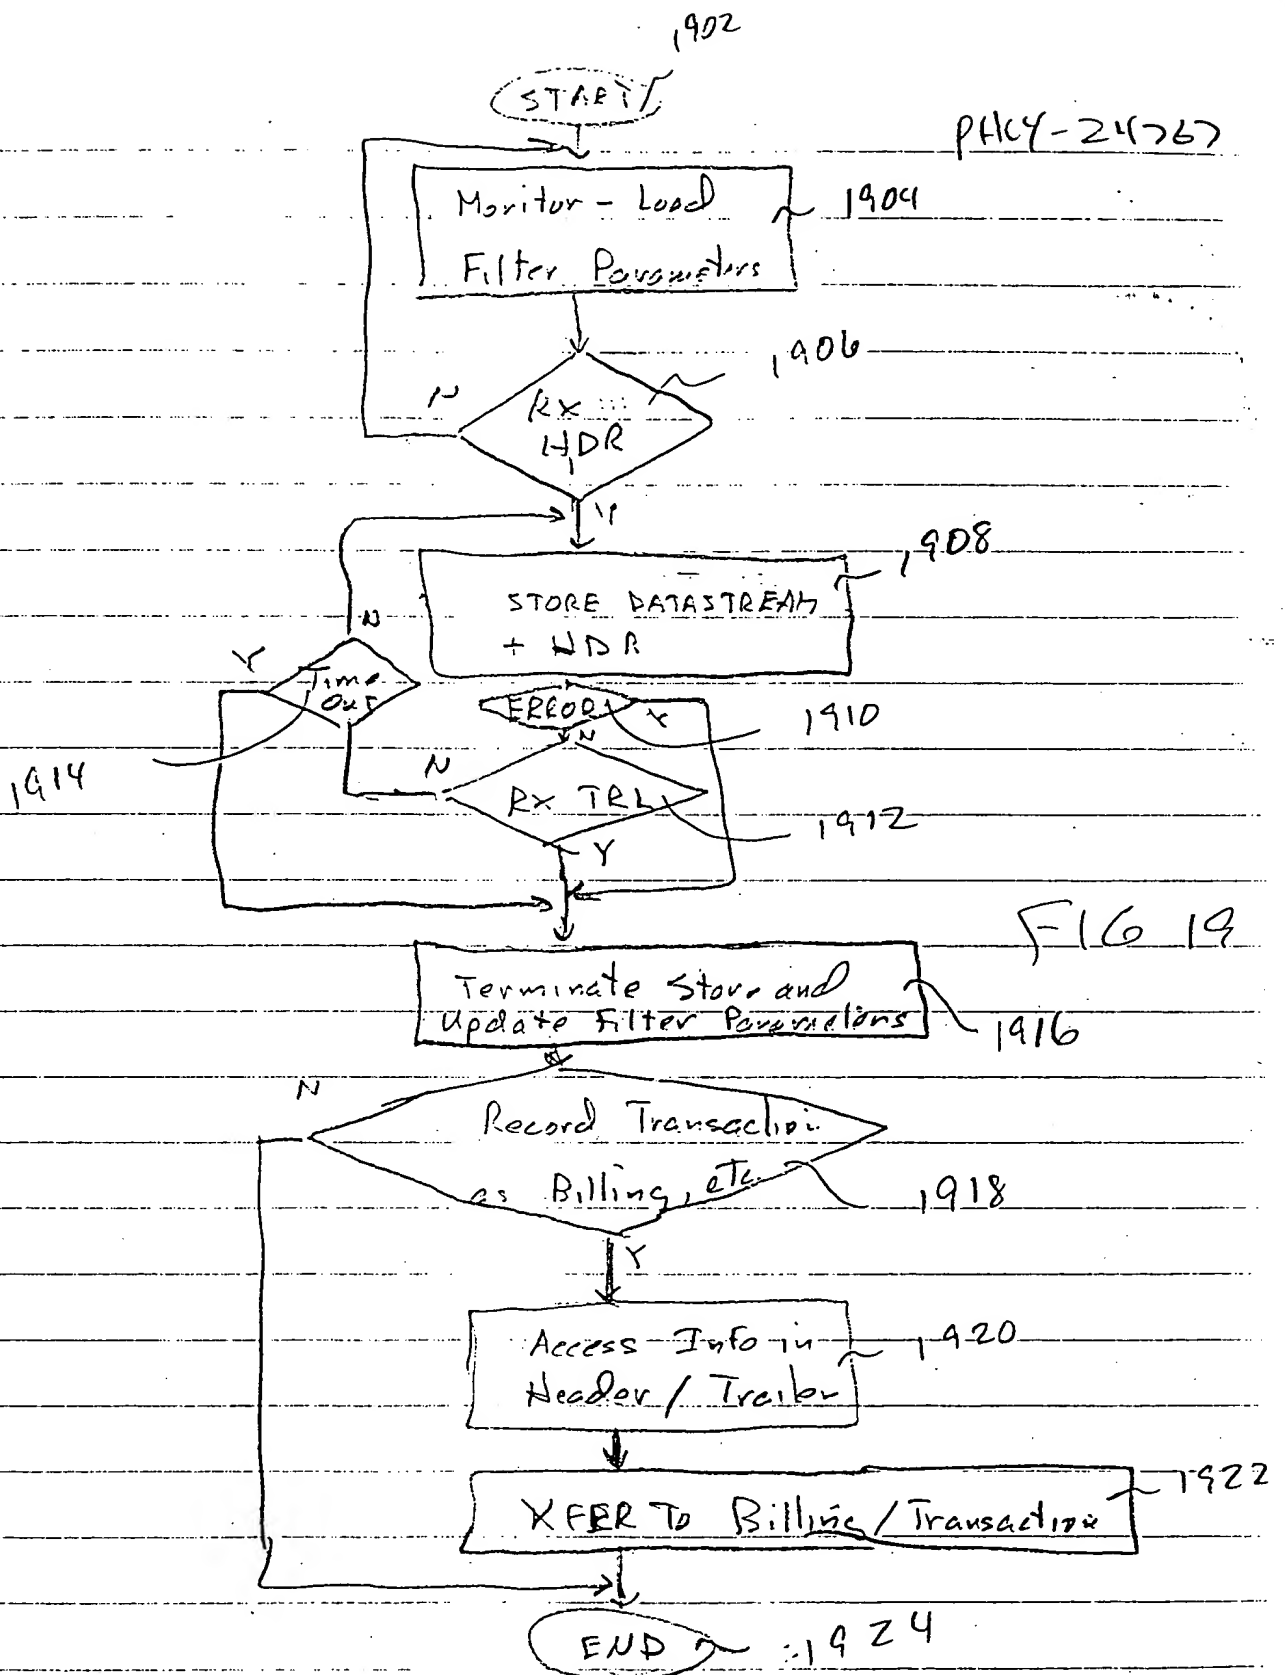 1902
START
PHLY-24767
Monitor - Load
1904
Filter Parameters
1906
N
RX
HDR
Y
1908
STORE DATASTREAM
+ HDR
N
Y
Time
Out
ERROR
Y
1910
N
1914
N
RX TRL
1912
Y
FIG 19
Terminate Store and
Update Filter Parameters
1916
N
Record Transaction
as Billing, etc.
1918
Y
Access Info in
1920
Header / Trailer
1922
XFER TO Billing / Transaction
END
1924